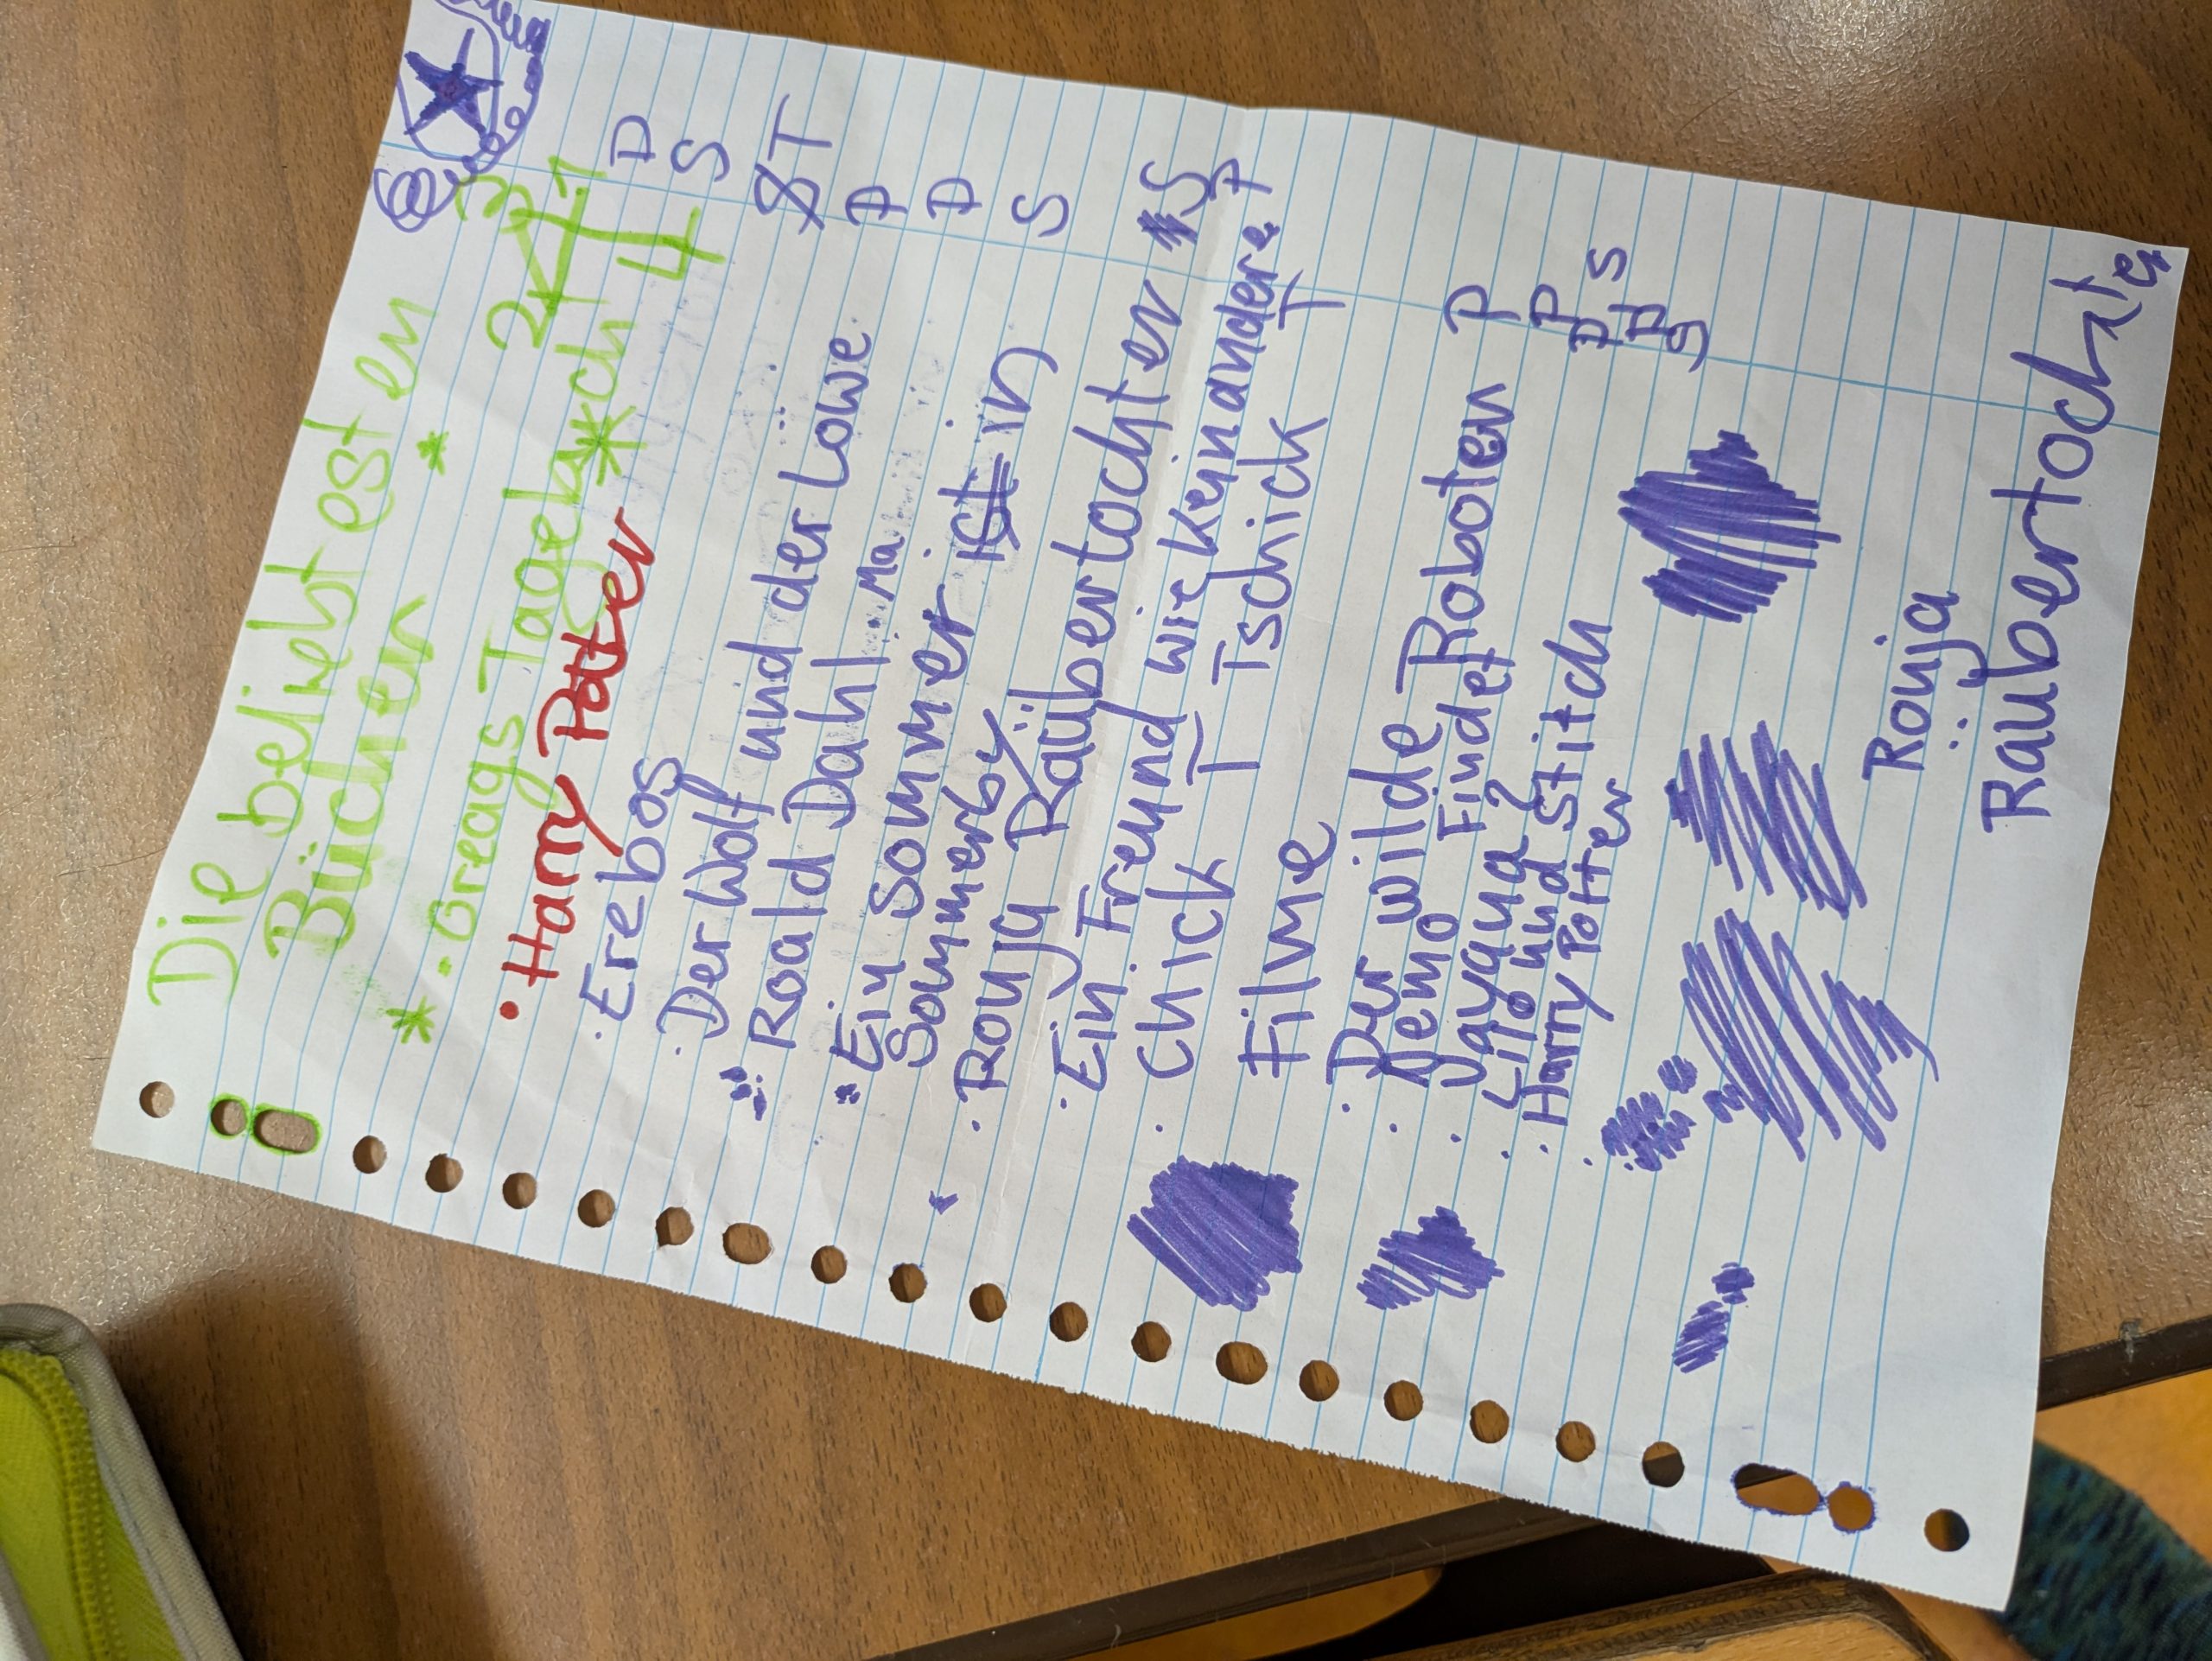 Die beliebtesten
Bücher
· Greags Tagebuch
· Harry Potter 4
· Erebos D
· Der Wolf und der Löwe S
Roald Dahl T
· Ein sommer in A
Sommerby A
· Ronja Raübertochter S
· Ein Freund wie kein anderer S
· Chick T Tschick T
Filme
· Der wilde Roboter P
· Nemo Findet P
· Vayana?
· Lilo und stitch
· Harry Potter S
Ronja
Raübertochter